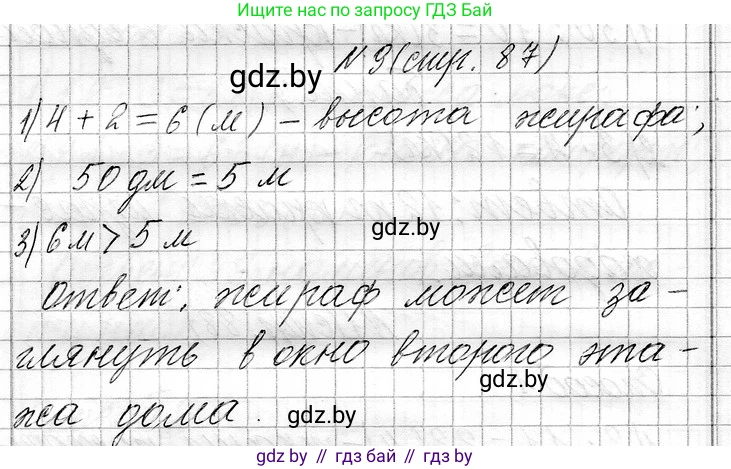 Ищите нас по запросу ГДЗ Бай
№ 9 (стр. 87)
gdz.by
1) 4 + 2 = 6 (м) – высота жирафа;
2) 50 дм = 5 м
3) 6 м > 5 м
gdz.by
Ответ: жираф может за-
глянуть в окно второго эта-
gdz.by
жа дома.
gdz.by
gdz.by // гдз бай // gdz.by